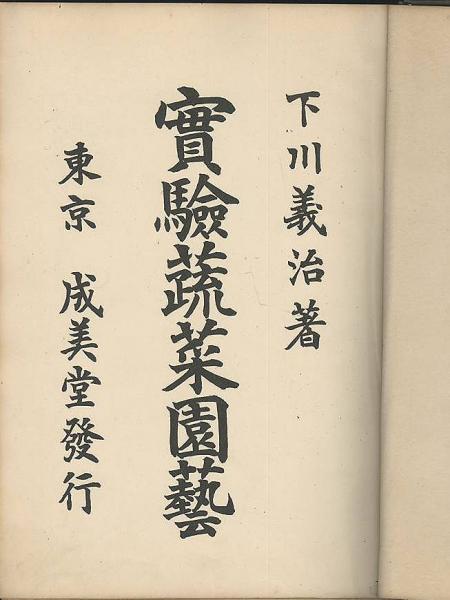 下川義治著
實驗蔬菜園藝
東京 成美堂發行